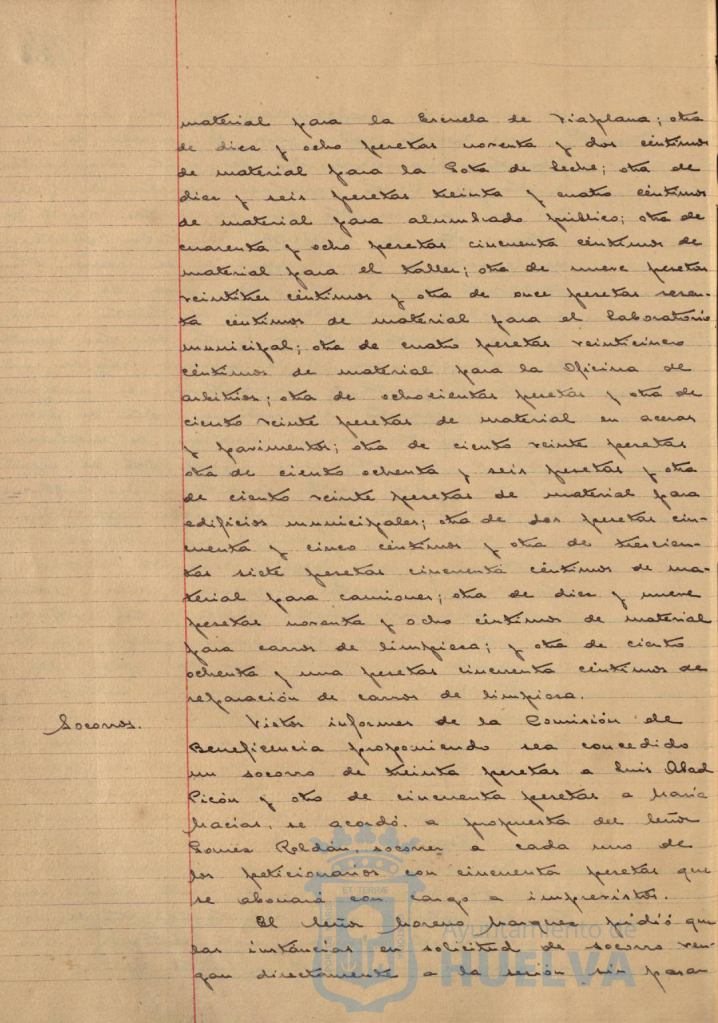 material para la Escuela de Viaplana; otra
de diez y ocho pesetas noventa y dos céntimos
de material para la Gota de leche; otra de
diez y seis pesetas treinta y cuatro céntimos
de material para alumbrado público; otra de
cuarenta y ocho pesetas cincuenta céntimos de
material para el taller; otra de nueve pesetas
veintitres céntimos y otra de once pesetas sesen-
ta céntimos de material para el laboratorio
municipal; otra de cuatro pesetas veinticinco
céntimos de material para la Oficina de
arbitrios; otra de ochocientas pesetas y otra de
ciento veinte pesetas de material en aceras
y pavimentos; otra de ciento veinte pesetas
otra de ciento ochenta y seis pesetas y otra
de ciento veinte pesetas de material para
edificios municipales; otra de dos pesetas cin-
cuenta y cinco céntimos y otra de trescien-
tas siete pesetas cincuenta céntimos de ma-
terial para camiones; otra de diez y nueve
pesetas noventa y ocho céntimos de material
para carros de limpieza; y otra de ciento
ochenta y una pesetas cincuenta céntimos de
reparación de carros de limpieza.
Socorros.
Vistos informes de la Comisión de
Beneficencia proponiendo sea concedido
un socorro de treinta pesetas a Luis Abad
Picón y otro de cincuenta pesetas a María
Macías, se acordó, a propuesta del Señor
Gomez Roldán, socorrer a cada uno de
los peticionarios con cincuenta pesetas que
se abonará con cargo a imprevistos.
El Señor Moreno Marquez pidió que
las instancias en solicitud de socorro ven-
gan directamente a la sesión sin pasar
Ayuntamiento de
HUELVA